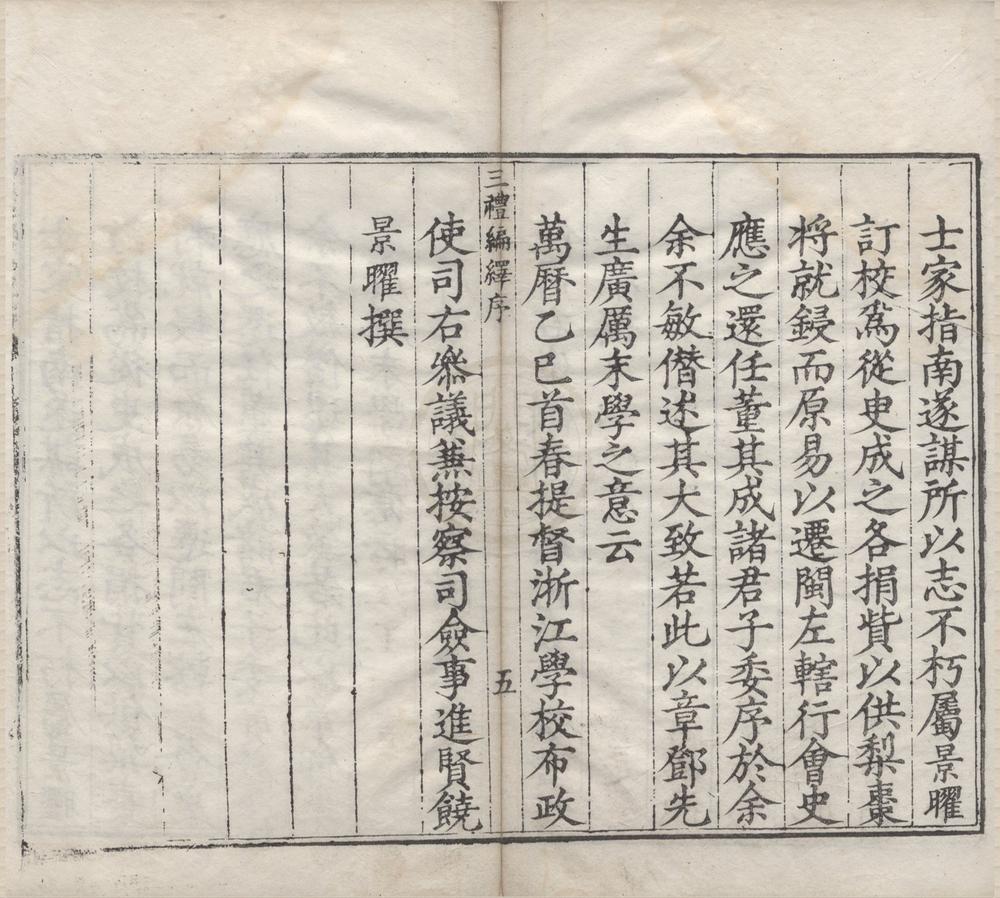 士家指南遂謀所以志不朽屬景曜
訂校爲從史成之各捐貲以供梨棗
将就鋟而原易以遷閩左轄行會史
應之還任董其成諸君子委序於余
余不敏僣述其大致若此以章鄧先
生廣厲末學之意云
萬曆乙巳首春提督浙江學校布政
三禮編繹序 五
使司右叅議蕪按察司僉事進賢饒
景曜撰